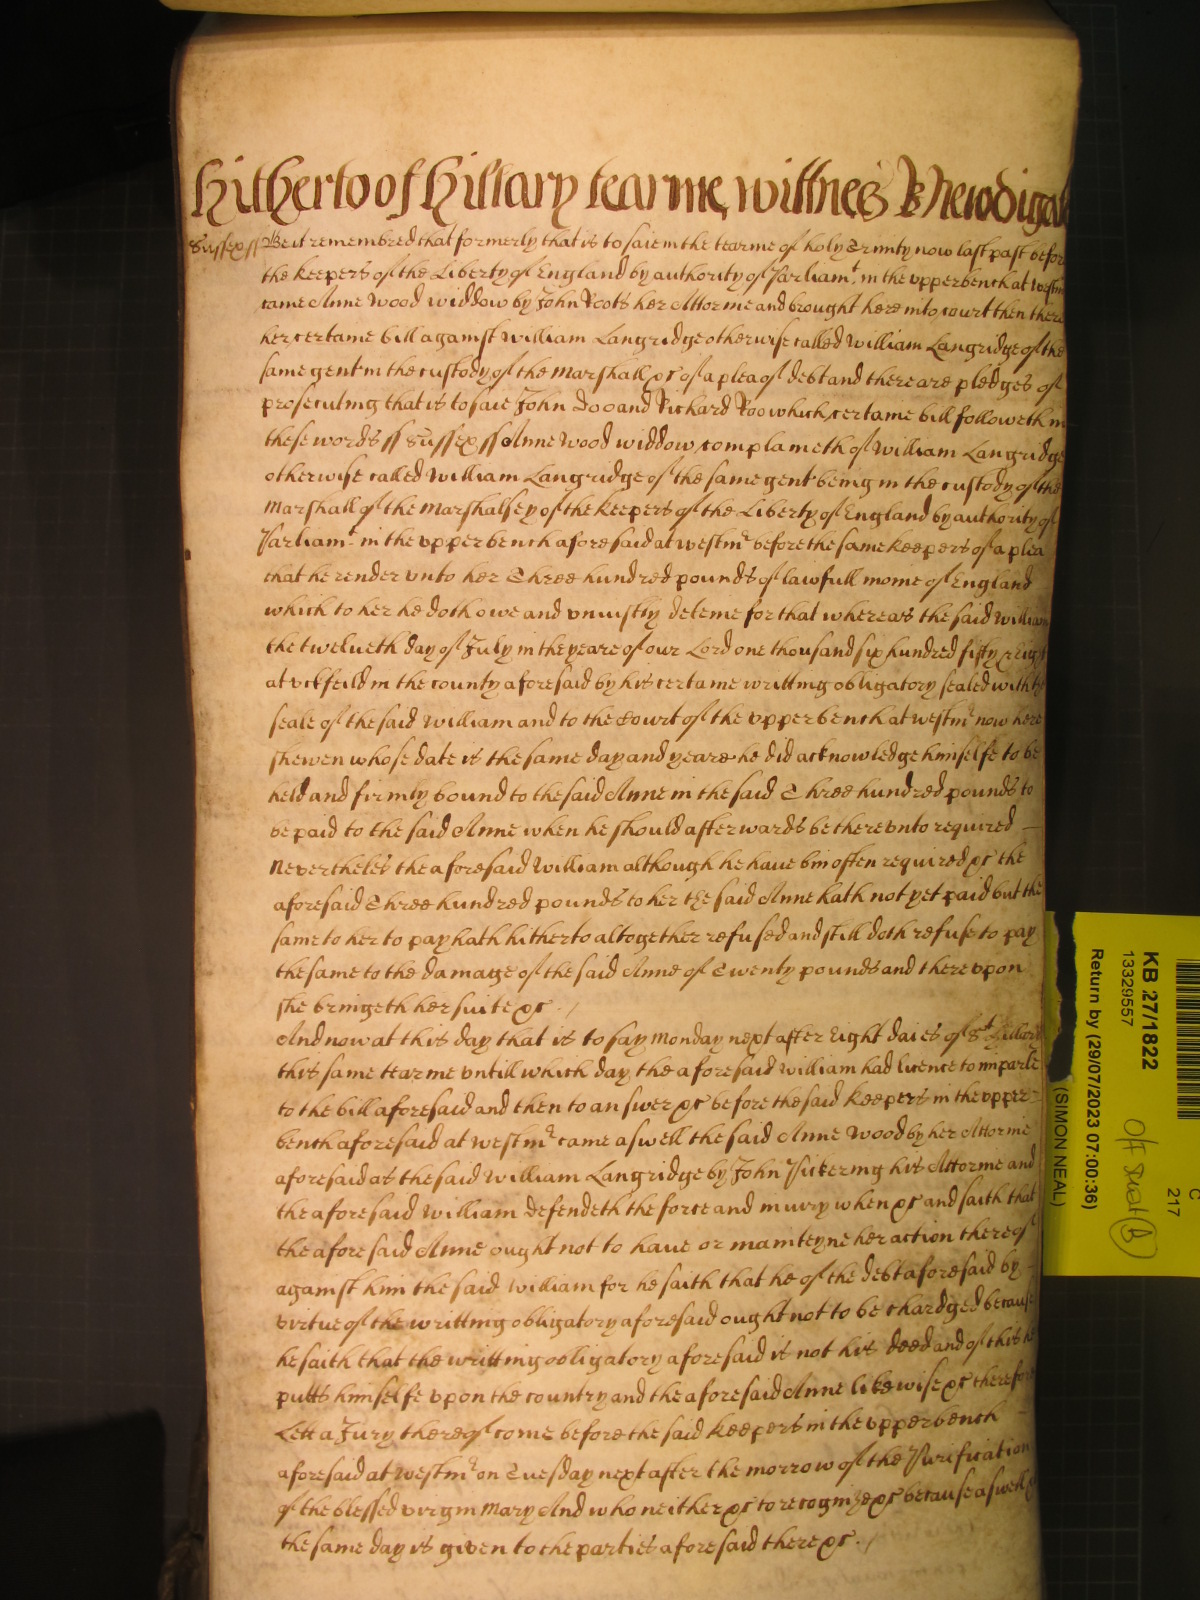 Hitherto of Hillary tearme wittnes R Newdigat
Sussex ss Be it remembred that formerly that is to saie in the tearme of holy Trinity now last past befor
the keepers of the Liberty of England by authority of Parliamt. in the upper bench at Westm
came Anne Wood widdow by John Coots her Attornie and brought here into court then there
her certaine bill against William Langridge otherwise called William Langridge of the
same gent in the custody of the Marshall &c of a plea of debt and there are pledges of
prosecuting that is to saie John Doo and Richard Roo which certaine bill followeth in
these words ss Sussex ss Anne Wood widdow complaineth of William Langridge
otherwise called William Langridge of the same gent being in the custody of the
Marshall of the Marshalsey of the keepers of the Liberty of England by authority of
Parliamt. in the vpper bench aforesaid at westmr before the same keepers of a plea
that he render vnto her Three hundred pounds of lawfull monie of England
which to her he doth owe and vniustly deteine for that whereas the said William
the twelueth day of July in the yeare of our Lord one thousand six hundred fifty & eight
at vckfeild in the county aforesaid by his certaine writting obligatory sealed with the
seale of the said William and to the Court of the vpper bench at westmr now here
shewen whose date is the same day and yeare he did acknowledge himselfe to be
held and firmly bound to the said Anne in the said Three hundred pounds to
be paid to the said Anne when he should afterwards be therevnto required
Nevertheles the aforesaid William although he have bin often required &c the
aforesaid Three hundred pounds to her the said Anne hath not yet paid but the
same to her to pay hath hitherto altogether refused and still doth refuse to pay
the same to the damage of the said Anne of Twenty pounds and therevpon
she bringeth her suite &c.
And now at this day that is to say Monday next after Eight daies of St Hillary
this same tearme vntill which day the aforesaid William had licence to imparle
to the bill aforesaid and then to answer &c before the said keepers in the vpper
bench aforesaid at westmr came aswell the said Anne Wood by her Attornie
aforesaid as the said William Langridge by John Pickering his Attornie and
the aforesaid William defendeth the force and iniury when &c and saith that
the aforesaid Anne ought not to have or mainteyne her action thereof
against him the said William for he saith that he of the debt aforesaid by
virtue of the writting obligatory aforesaid ought not to be chardged because
he saith that the writting obligatory aforesaid is not his deed and of this he
putts himselfe vpon the country and the aforesaid Anne likewise &c therefore
Lett a Jury thereof come before the said keepers in the vpper bench
aforesaid at westmr on Tuesday next after the morrow of the Purification
of the blessed virgin Mary And who neither &c to recognize &c because aswell &c
the same day is given to the parties aforesaid there &c.
KB 27/1822
13329557
Return by (29/07/2023 07:00:36)
(SIMON NEAL)
C
217